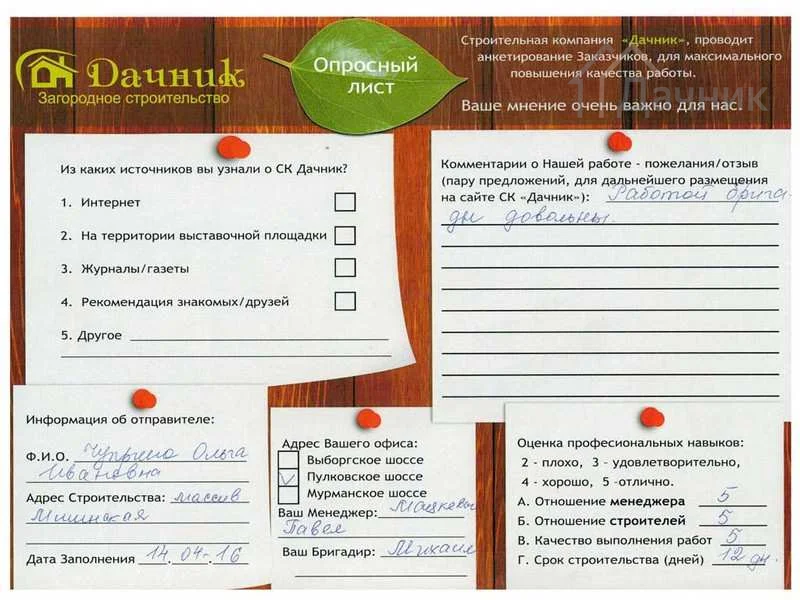 Дачник
Загородное строительство
Опросный
лист
Строительная компания «Дачник», проводит
анкетирование Заказчиков, для максимального
повышения качества работы.
Ваше мнение очень важно для нас.
Дачник
Из каких источников вы узнали о СК Дачник?
1. Интернет
2. На территории выставочной площадки
3. Журналы/газеты
4. Рекомендация знакомых/друзей
5. Другое
Комментарии о Нашей работе - пожелания/отзыв
(пару предложений, для дальнейшего размещения
на сайте СК «Дачник»): Работой брига-
ды довольны.
Информация об отправителе:
Ф.И.О. Ольга
Ивановна
Адрес Строительства: массив
Мшинская
Дата Заполнения 14.04.16
Адрес Вашего офиса:
Выборгское шоссе
Пулковское шоссе
Мурманское шоссе
Ваш Менеджер:
Павел
Ваш Бригадир: Михаил
Оценка профессиональных навыков:
2 - плохо, 3 - удовлетворительно,
4 - хорошо, 5 -отлично.
А. Отношение менеджера 5
Б. Отношение строителей 5
В. Качество выполнения работ 5
Г. Срок строительства (дней) 12 дн.